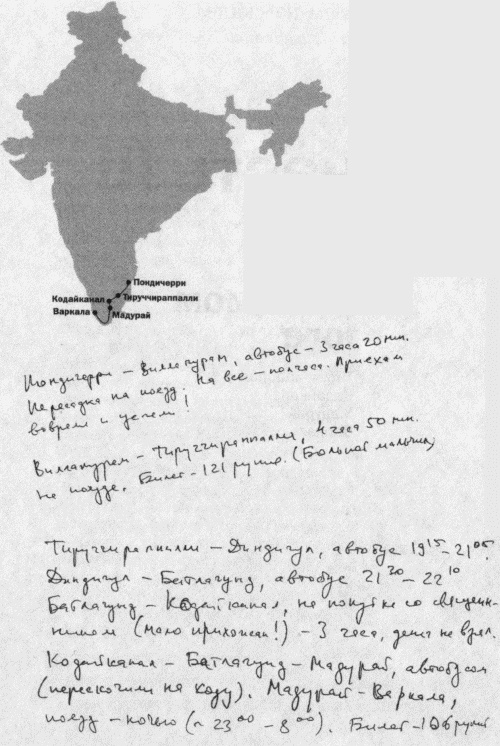 Пондичерри
Кодайканал Тируччираппалли
Варкала Мадурай
Пондичерри – Виллапурам, автобус – 3 часа 20 мин.
Пересадка на поезд. На все – полчаса. Приехали
вовремя и успели!
Виллапурам – Тируччираппалли, 4 часа 50 мин.
на поезде. Билет – 121 рупия. (Большой молодец)
Тируччираппалли – Диндигул, автобус 19 15 – 21 05.
Диндигул – Батлагунд, автобус 21 20 – 22 10
Батлагунд – Кодайканал, на попутке со священ-
ником (мало прихожан!) – 3 часа, денег не взял.
Кодайканал – Батлагунд – Мадурай, автобусом
(перескочили на ходу). Мадурай – Варкала,
поезд – ночью (~ 23 00 – 8 00). Билет – 106 рупий